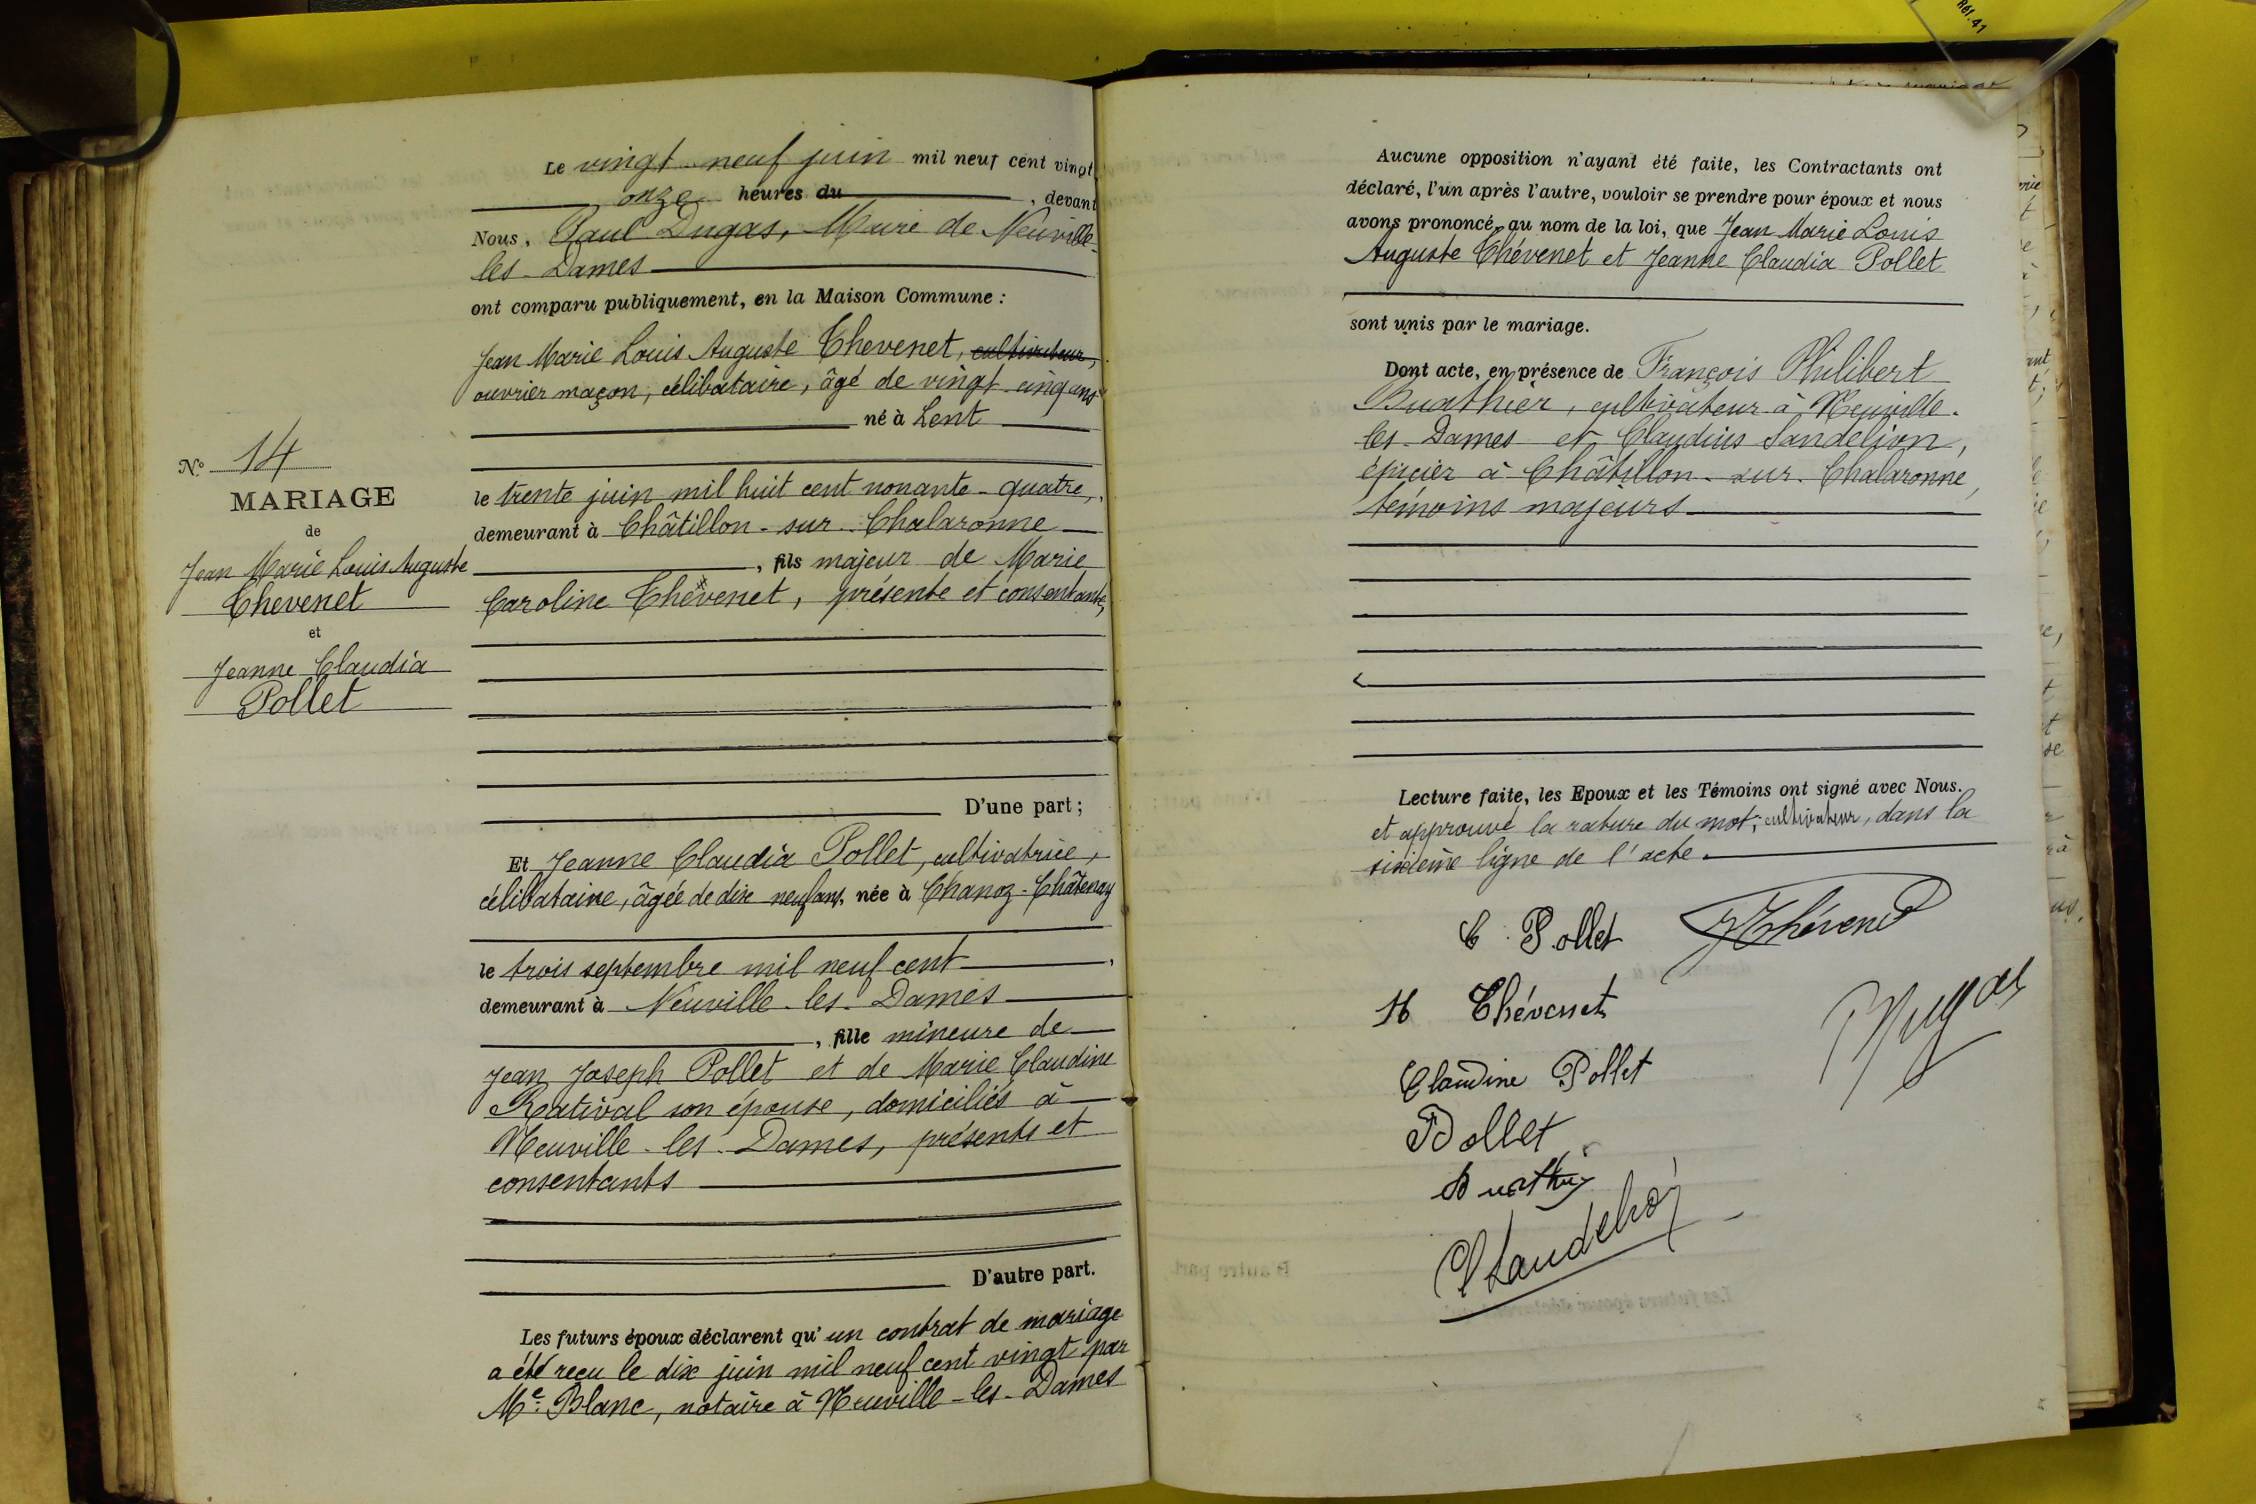 Réf. 41
Le vingt-neuf juin mil neuf cent vingt
onze heures du , devant
Nous, Paul Dugas, Maire de Neuville-
les-Dames
ont comparu publiquement, en la Maison Commune :
Jean Marie Louis Auguste Thevenet, cultivateur,
ouvrier maçon, célibataire, âgé de vingt-cinq ans
né à Lent
le trente juin mil huit cent nonante-quatre,
demeurant à Châtillon-sur-Chalaronne
, fils majeur de Marie
Caroline Thévenet, présente et consentante,
D'une part ;
Et Jeanne Claudia Pollet, cultivatrice,
célibataire, âgée de dix neuf ans, née à Chanoz-Châtenay
le trois septembre mil neuf cent ,
demeurant à Neuville-les-Dames
, fille mineure de
Jean Joseph Pollet et de Marie Claudine
Rativel son épouse, domiciliés à
Neuville-les-Dames, présents et
consentants
D'autre part.
Les futurs époux déclarent qu'un contrat de mariage
a été reçu le dix juin mil neuf cent vingt par
Me Blanc, notaire à Neuville-les-Dames
N° 14
MARIAGE
de
Jean Marie Louis Auguste
Thevenet
et
Jeanne Claudia
Pollet
Aucune opposition n'ayant été faite, les Contractants ont
déclaré, l'un après l'autre, vouloir se prendre pour époux et nous
avons prononcé, au nom de la loi, que Jean Marie Louis
Auguste Thévenet et Jeanne Claudia Pollet
sont unis par le mariage.
Dont acte, en présence de François Philibert
Buathier, cultivateur à Neuville-
les-Dames et Claudius Sandelion,
épicier à Châtillon-sur-Chalaronne,
témoins majeurs
Lecture faite, les Epoux et les Témoins ont signé avec Nous.
et approuvé la rature du mot, cultivateur, dans la
sixième ligne de l'acte.
C. Pollet JThévenet
H Thévenet
PDugas
Claudine Pollet
Pollet
Buathier